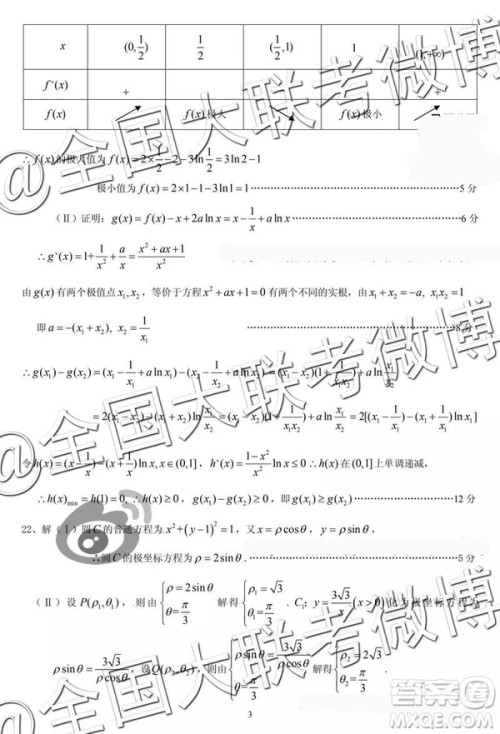 x (0,1/2) 1/2 (1/2,1) 1 (1,+∞)
f`(x) +
f(x) f(x)极大 f(x)极小
∴f(x)的极大值为f(x)=2×1/2-2-3ln1/2=3ln2-1
极小值为f(x)=2×1-1-3ln1=1 5分
(Ⅱ)证明: g(x)=f(x)-x+2a ln x=x-1/x+a ln x 6分
∴g`(x)=1+1/x²+a/x=(x²+ax+1)/x²
由g(x)有两个极值点x₁,x₂, 等价于方程x²+ax+1=0有两个不同的实根, 由x₁+x₂=-a, x₁x₂=1
即a=-(x₁+x₂), x₂=1/x₁ 8分
∴g(x₁)-g(x₂)=(x₁-1/x₁+a ln x₁)-(x₂-1/x₂+a ln x₂)=(x₁-x₂)(1+1/x₁x₂)+a ln x₁/x₂
=2(x₁-x₂)-(x₁+x₂)ln x₁/x₂=2(x₁-1/x₁)-2a ln x₁/x₂=2[(x₁-1/x₁)-(x₁+1/x₁)ln x₁]
令h(x)=(x-1/x)-(x+1/x)ln x, x∈(0,1], h`(x)=(1-x²)/x² ln x≤0 ∴h(x)在(0,1]上单调递减,
∴h(x)min=h(1)=0, ∴h(x)≥0, g(x₁)-g(x₂)≥0, 即g(x₁)≥g(x₂) 12分
22、解(Ⅰ)圆C的普通方程为x²+(y-1)²=1, 又x=ρcosθ, y=ρsinθ
∴圆C的极坐标方程为ρ=2sinθ. 5分
(Ⅱ)设P(ρ₁,θ₁), 则由{ρ=2sinθ θ=π/3 解得{ρ₁=√3 θ₁=π/3 . C₁: y=3√3/x (x>0)化为极坐标方程为
ρsinθ=3√3/ρcosθ, 设Q(ρ₂,θ₂), 则由{ρsinθ=3√3/ρcosθ θ=π/3 解得{ρ₂=2√3 θ₂=π/3
3
@全国大联考微博
@全国大联考微博
@全国大联考微博
答案圈
MXQE.COM